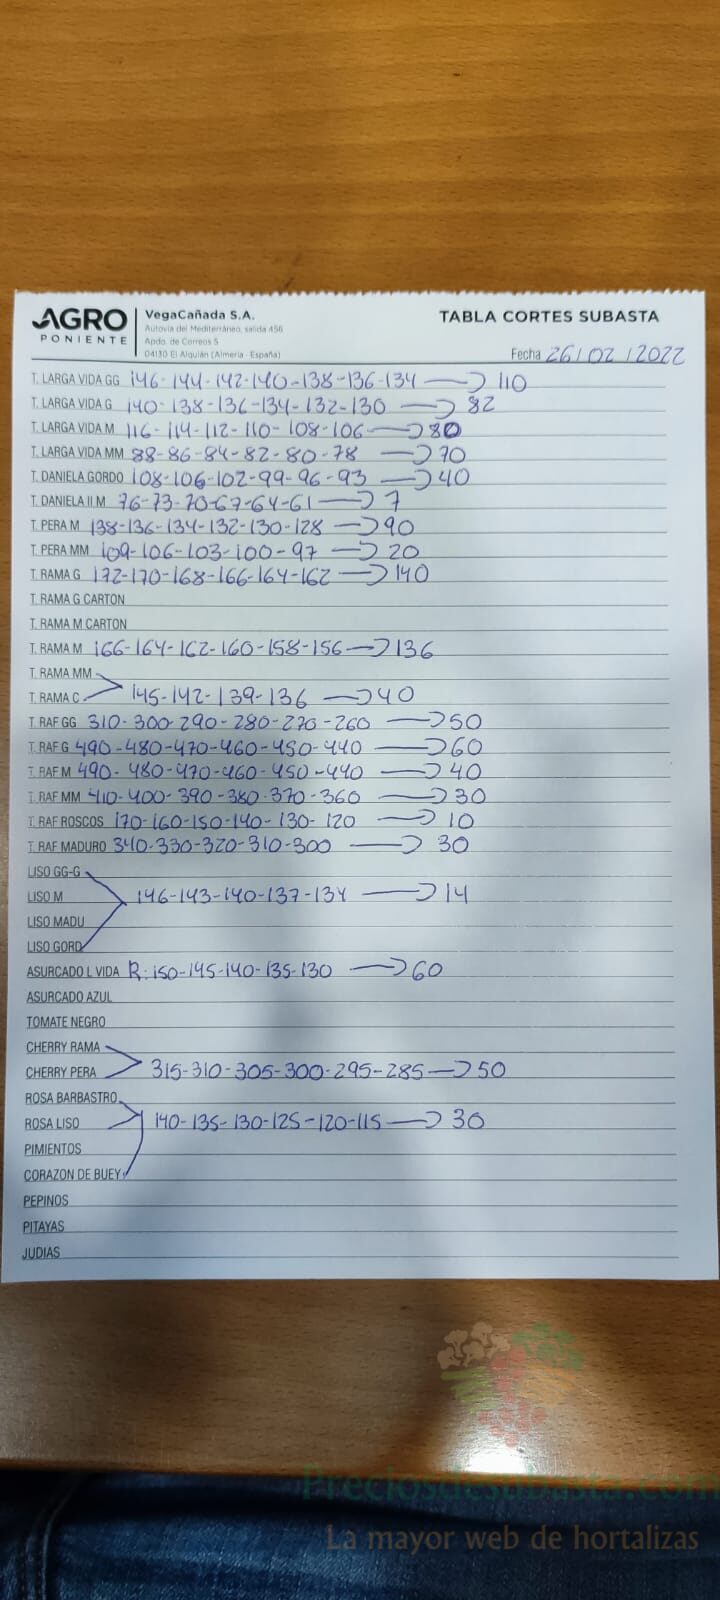 AGRO
PONIENTE
VegaCañada S.A.
Autovía del Mediterráneo, salida 456
Apdo. de Correos 5
04130 El Alquián (Almería - España)
TABLA CORTES SUBASTA
Fecha 26/02/2022
T. LARGA VIDA GG 146-144-142-140-138-136-134 → 110
T. LARGA VIDA G 140-138-136-134-132-130 → 82
T. LARGA VIDA M 116-114-112-110-108-106 → 80
T. LARGA VIDA MM 88-86-84-82-80-78 → 70
T. DANIELA GORDO 108-106-102-99-96-93 → 40
T. DANIELA II.M 76-73-70-67-64-61 → 7
T. PERA M 138-136-134-132-130-128 → 90
T. PERA MM 109-106-103-100-97 → 20
T. RAMA G 172-170-168-166-164-162 → 140
T. RAMA G CARTON
T. RAMA M CARTON
T. RAMA M 166-164-162-160-158-156 → 136
T. RAMA MM
T. RAMA C 145-142-139-136 → 40
T. RAF GG 310-300-290-280-270-260 → 50
T. RAF G 490-480-470-460-450-440 → 60
T. RAF M 490-480-470-460-450-440 → 40
T. RAF MM 410-400-390-380-370-360 → 30
T. RAF ROSCOS 170-160-150-140-130-120 → 10
T. RAF MADURO 340-330-320-310-300 → 30
LISO GG-G
LISO M 146-143-140-137-134 → 14
LISO MADU
LISO GORD
ASURCADO L VIDA R: 150-145-140-135-130 → 60
ASURCADO AZUL
TOMATE NEGRO
CHERRY RAMA
CHERRY PERA 315-310-305-300-295-285 → 50
ROSA BARBASTRO
ROSA LISO 140-135-130-125-120-115 → 30
PIMIENTOS
CORAZON DE BUEY
PEPINOS
PITAYAS
JUDIAS
Preciosdesubasta.com
La mayor web de hortalizas